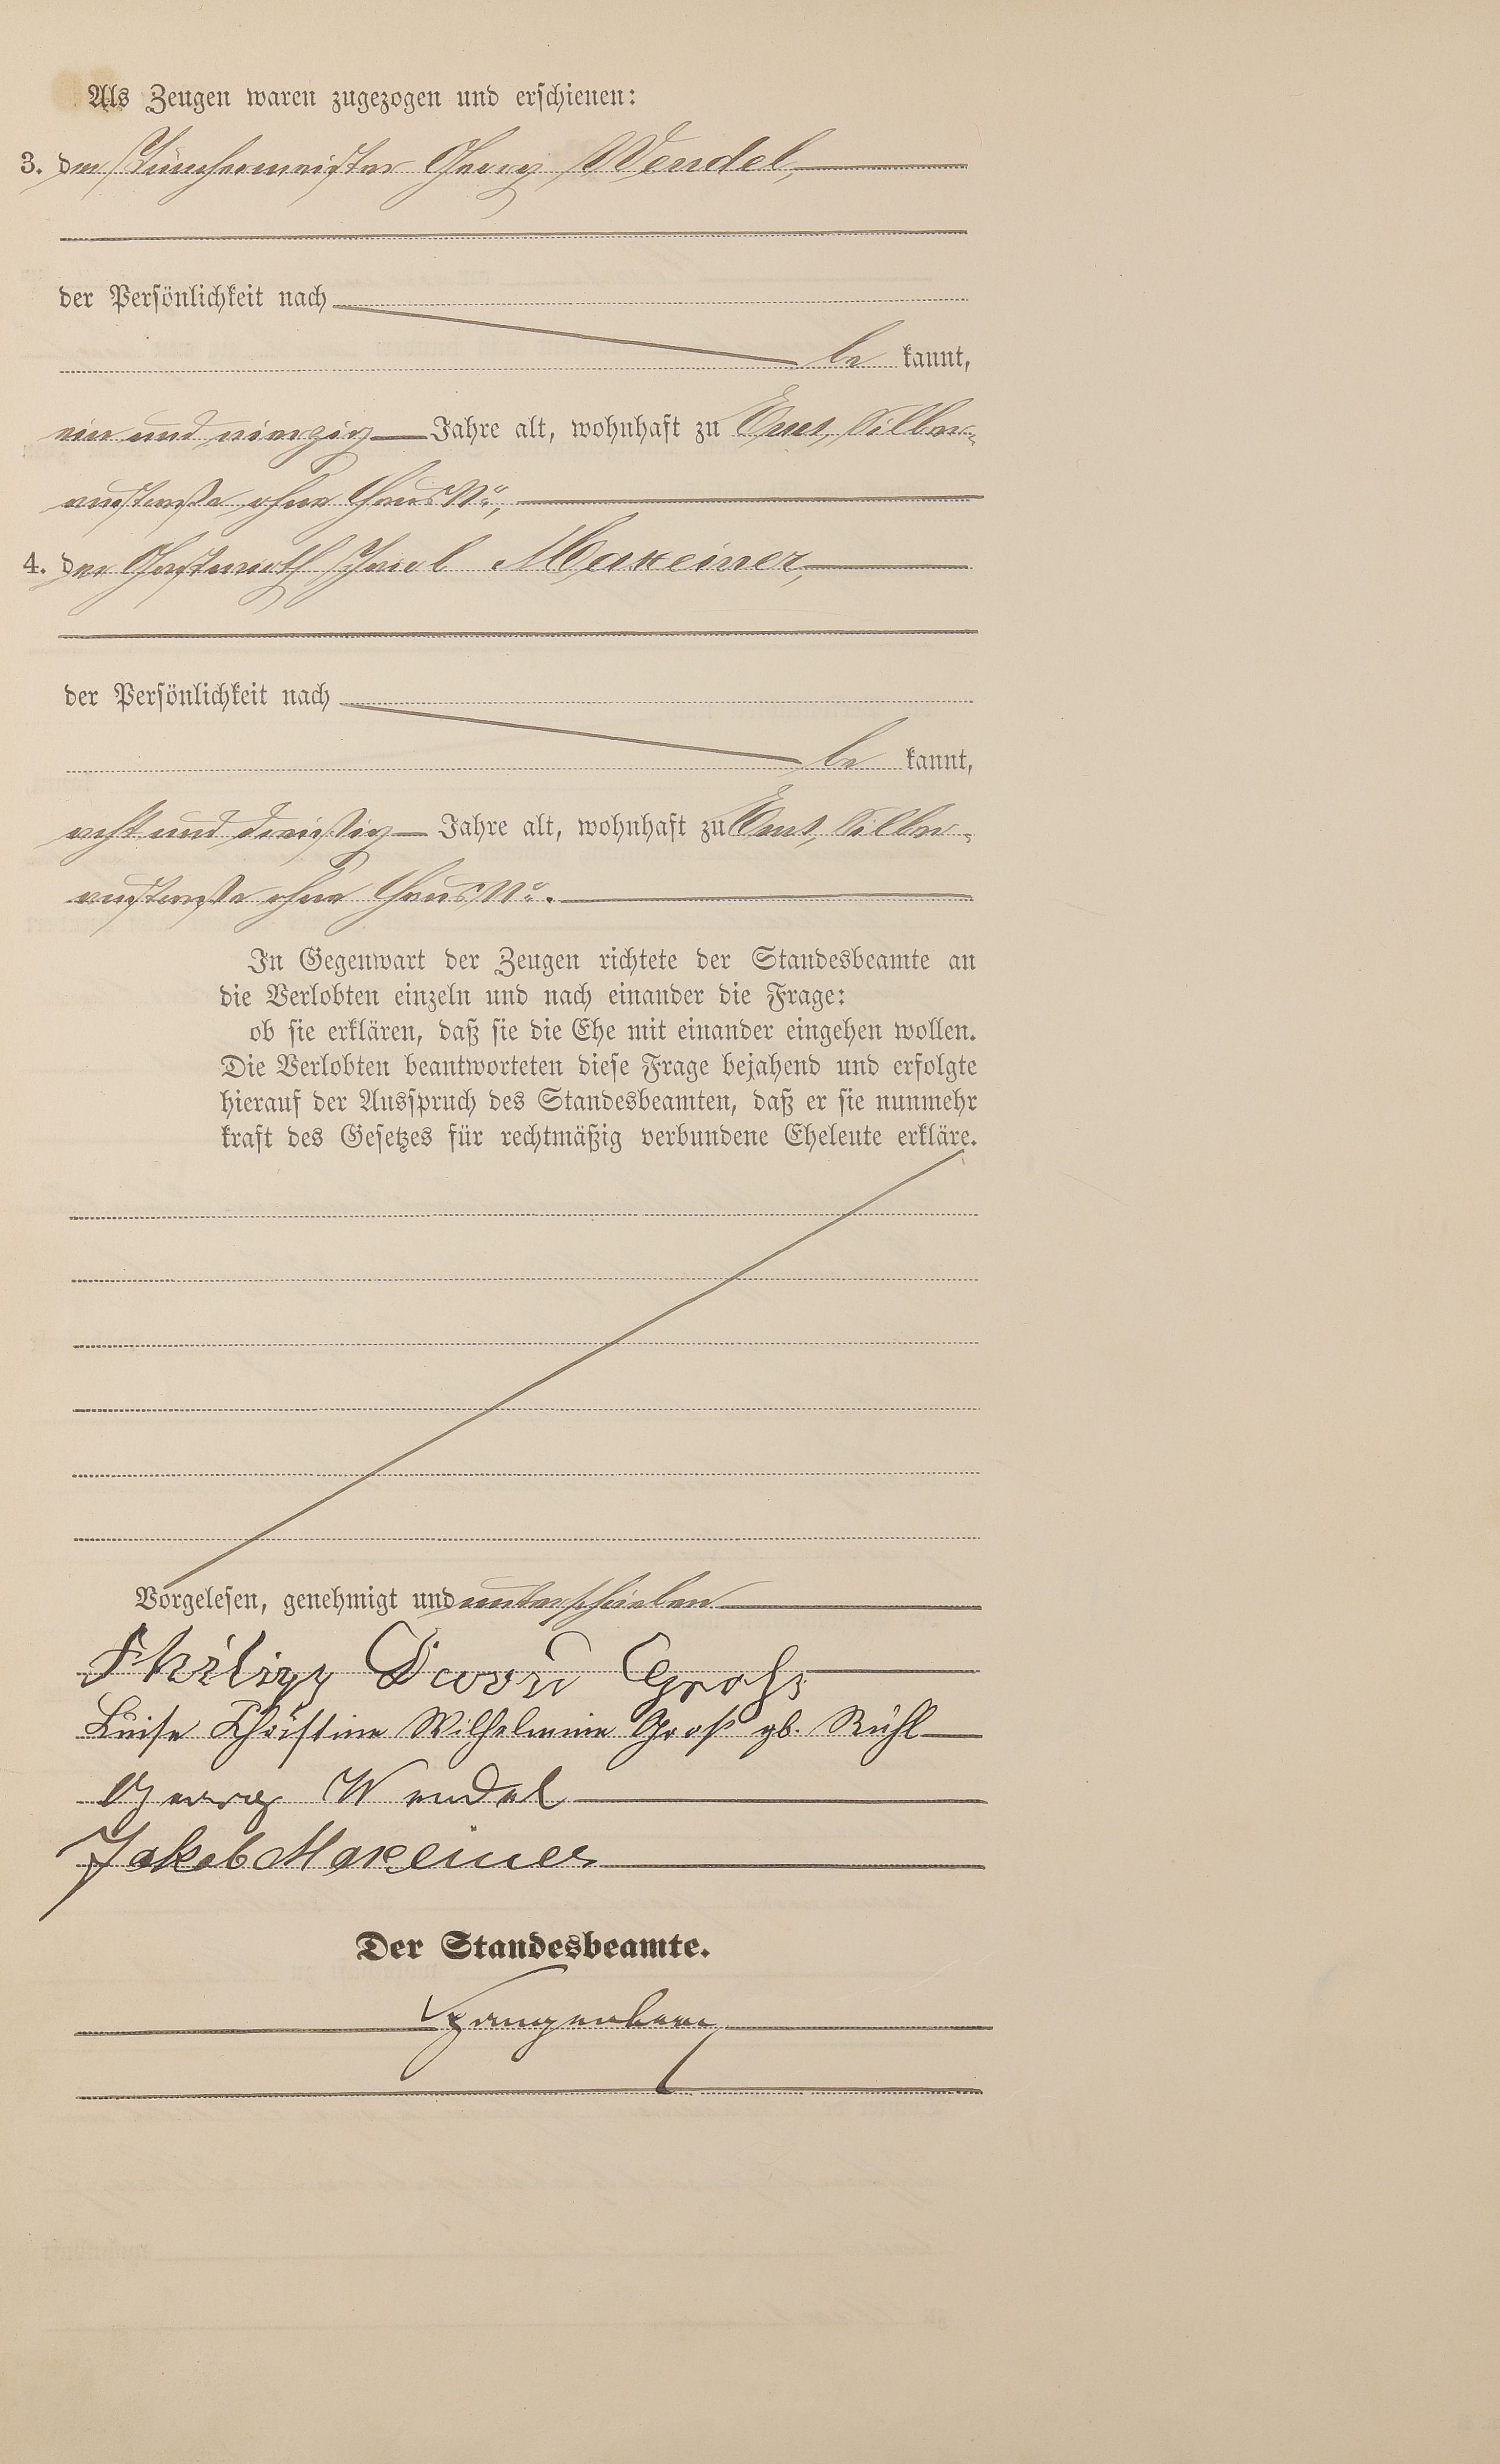 Als Zeugen waren zugezogen und erschienen:
3. der Tünchermeister Georg Wendel,
der Persönlichkeit nach
be kannt,
ein und vierzig Jahre alt, wohnhaft zu Ems, Silber-
austraße ohne Haus No,
4. der Gastwirth Jacob Maxeiner,
der Persönlichkeit nach
be kannt,
acht und dreißig Jahre alt, wohnhaft zu Ems, Silber-
austraße ohne Haus No.
In Gegenwart der Zeugen richtete der Standesbeamte an
die Verlobten einzeln und nach einander die Frage:
ob sie erklären, daß sie die Ehe mit einander eingehen wollen.
Die Verlobten beantworteten diese Frage bejahend und erfolgte
hierauf der Ausspruch des Standesbeamten, daß er sie nunmehr
kraft des Gesetzes für rechtmäßig verbundene Eheleute erkläre.
Vorgelesen, genehmigt und unterschrieben
Philipp David Groß
Luise Christine Wilhelmine Groß gb. Rühl
Georg Wendel
Jakob Maxeiner
Der Standesbeamte.